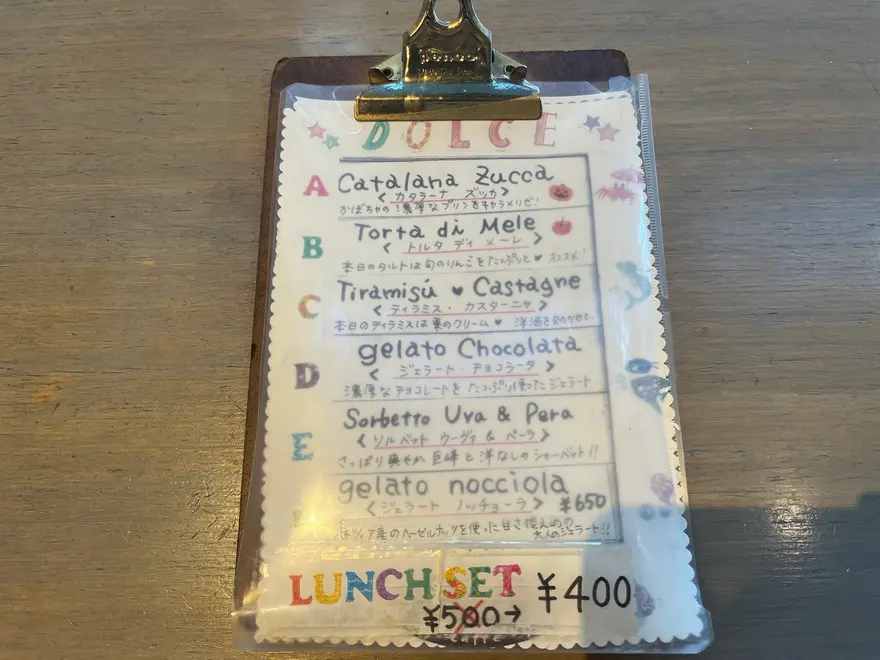 DOLCE
A Catalana Zucca
<カタラーナ ズッカ>
かぼちゃの濃厚なプリンをキャラメリゼ!
B Torta di Mele
<トルタ ディ メーレ>
本日のタルトは旬のりんごをたっぷりと♥ オススメ!
C Tiramisú ♥ Castagne
<ティラミス・カスターニャ>
本日のティラミスは栗のクリーム♥ 洋酒を効かせて
D gelato Chocolata
<ジェラート・チョコラータ>
濃厚なチョコレートをたっぷり使ったジェラート
E Sorbetto Uva & Pera
<ソルベット ウーヴァ & ペーラ>
さっぱり爽やか 巨峰と洋なしのシャーベット!!
gelato nocciola
<ジェラート ノッチョーラ> ¥650
産のヘーゼルナッツを使った甘さ控えめの
大人のジェラート!!
LUNCH SET ¥400
¥500→
caffe